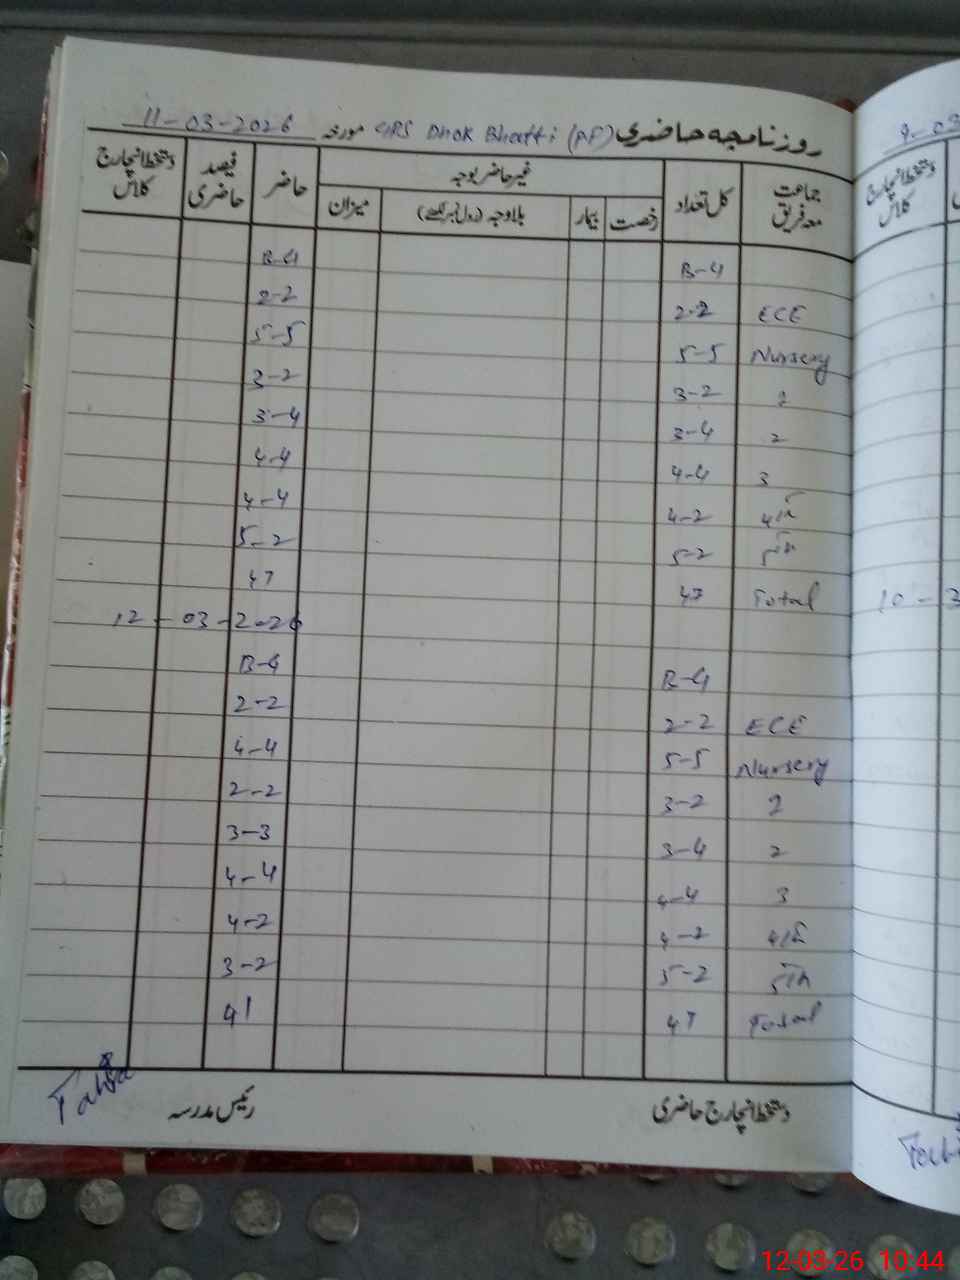 روزنامچہ حاضری GRS Dhok Bhatti (RP) مورخہ 11-03-2026
جماعت معہ فریق کل تعداد غیر حاضر بوجہ حاضر فیصد حاضری دستخط انچارج کلاس
رخصت بیمار بلاوجہ (رول نمبر لکھئے) میزان
B-G B-G
ECE 2-2 2-2
Nursery 5-5 5-5
3-2 3-2
2 3-4 3-4
3 4-4 4-4
4th 4-2 4-4
5th 5-2 5-2
Total 47 47
12-03-2026
B-G B-G
ECE 2-2 2-2
Nursery 5-5 4-4
3-2 2-2
2 3-4 3-3
3 4-4 4-4
4th 4-2 4-2
5th 5-2 3-2
Total 47 41
دستخط انچارج حاضری رئیس مدرسہ
دستخط انچارج کلاس
9-03
10-3
12-03-26 10:44